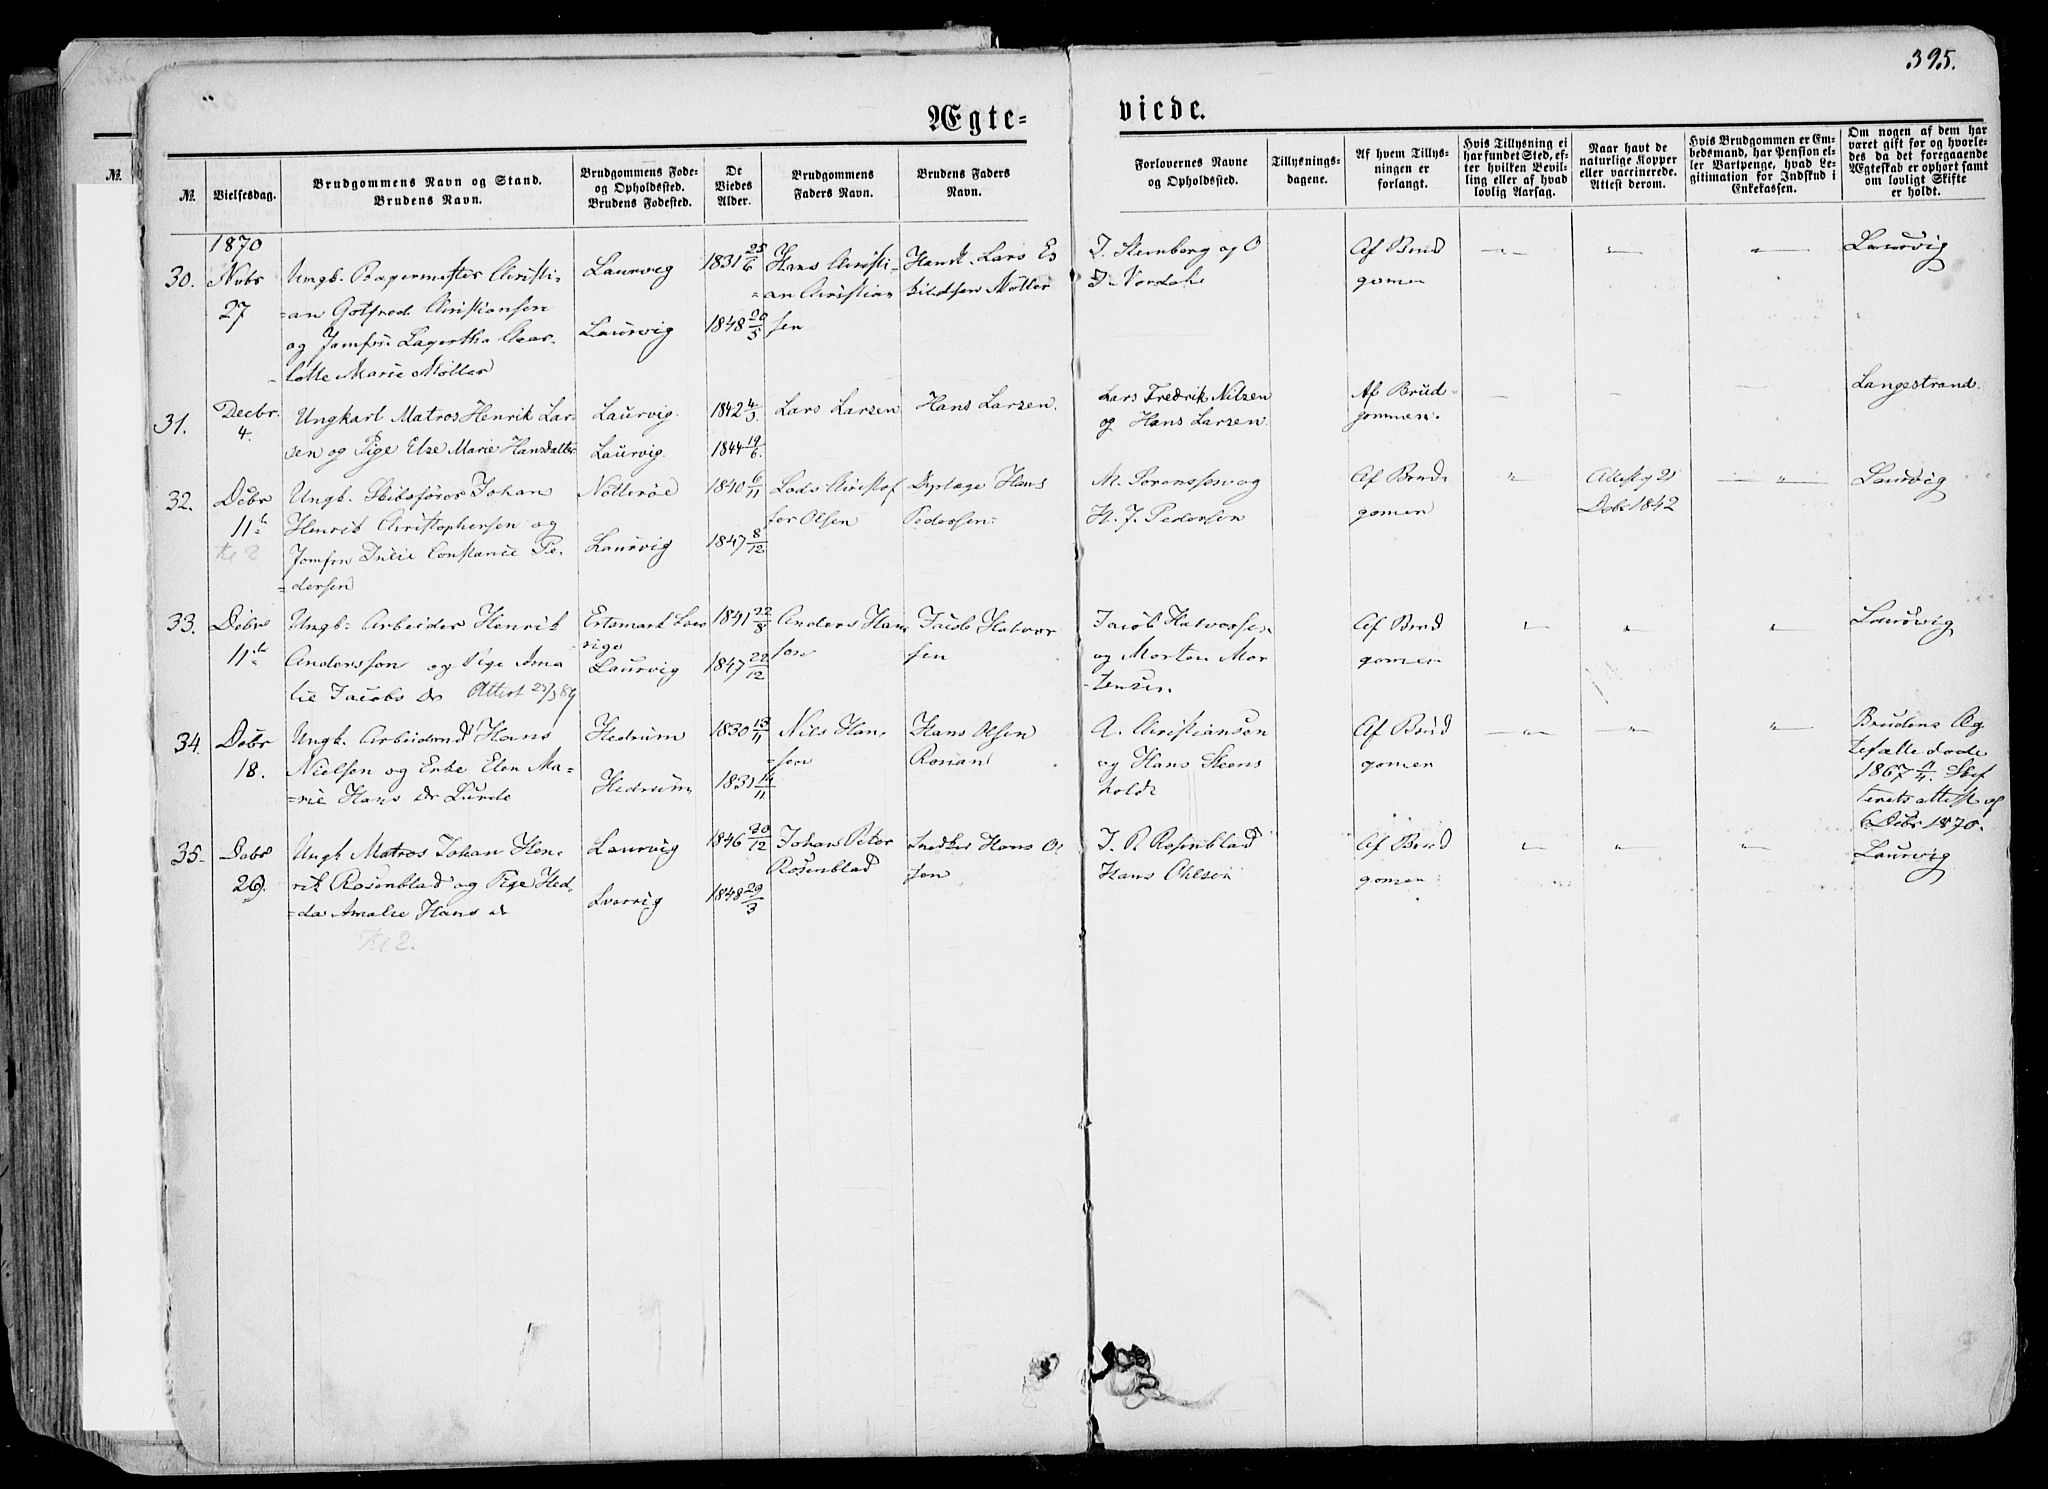 395.
Ægte=
viede.
№.
№.
Vielsesdag.
Brudgommens Navn og Stand.
Brudens Navn.
Brudgommens Føde-
og Opholdssted.
Brudens Fødested.
De
Viedes
Alder.
Brudgommens
Faders Navn.
Brudens Faders
Navn.
Forlovernes Navne
og Opholdssted.
Tillysnings-
dagene.
Af hvem Tillys-
ningen er
forlangt.
Hvis Tillysning ei
har fundet Sted, ef-
ter hvilken Bevil-
ling eller af hvad
lovlig Aarsag.
Naar havt de
naturlige Kopper
eller vaccinerede.
Attest derom.
Hvis Brudgommen er Em-
bedsmand, har Pension el-
ler Vartpenge, hvad Le-
gitimation for Indskud i
Enkekassen.
Om nogen af dem har
været gift før og hvorle-
des da det foregaaende
Ægteskab er ophørt samt
om lovligt Skifte
er holdt.
1870
30.
Nvbr
27
Ungk. Bagermester Christi-
=an Gotfred Christiansen
og Jomfru Lagertha Char-
lotte Marie Møller
Laurvig
Laurvig
1831 25/6
1848 20/5
Hans Christi-
=an Christian
sen
Handl. Lars Es
kildsen Møller
I. Stenberg og O
I Nordahl
Af Brud
gomen
Laurvig
31.
Decbr.
4.
Ungkarl Matros Henrik Lar-
sen og Pige Else Marie Hansdatter
Laurvig.
Laurvig.
1842 4/3.
1844 19/6.
Lars Larsen
Hans Larsen.
Lars Fredrik Nilsen
og Hans Larsen.
Af Brud-
gommen.
Langestrand.
32.
Debr
11te
Kl 2
Ungk. Skibsfører Johan
Henrik Christophersen og
Jomfru Constance Pe-
=dersen
Nøtterøe
Laurvig
1840 6/11
1847 8/12
Lods Christof
fer Olsen
Hans
Pedersen
M. Sørensen og
H. J. Pedersen
Af Brud-
gomen
Attest 21
Debr 1842
Laurvig
33.
Debre
11te
Ungk. Arbeider Henrik
Anderssen og Pige Ama
lie Jacobs dr Attest 25/3 89
Laurvig
1841 22/8
1847 22/12
Anders Han
sen
Jacob Halvor
sen
Jacob Halvorsen
og Morten Mor
tensen
Af Brud
gomen
Laurvig
34.
Debr
18.
Ungk. Arbeidsmd Hans
Nielsen og Enke Elen Ma-
=rie Hans dr Lunde
Hedrum
Hedrum
1830 13/11
1831 14/11
Nils Han
=sen
Hans Olsen
A. Christiansen
og Hans Steens
holdt
Af Brud
gomen
Brudens Æg
tefælle døde
1867 11/4. Skif
terets attest af
6 Debr 1870.
35.
Debr
26.
Ungk Matros Johan Hen-
rik Rosenblad og Pige Hed-
=da Amalie Hans dr
Kl 2.
Laurvig
Lvorvig
1846 20/12
1848 29/3
Johan Peter
Rosenblad
Snedker Hans Ol
sen
J. P. Rosenblad
Hans Ohlsen
Af Brud
gomen
Laurvig